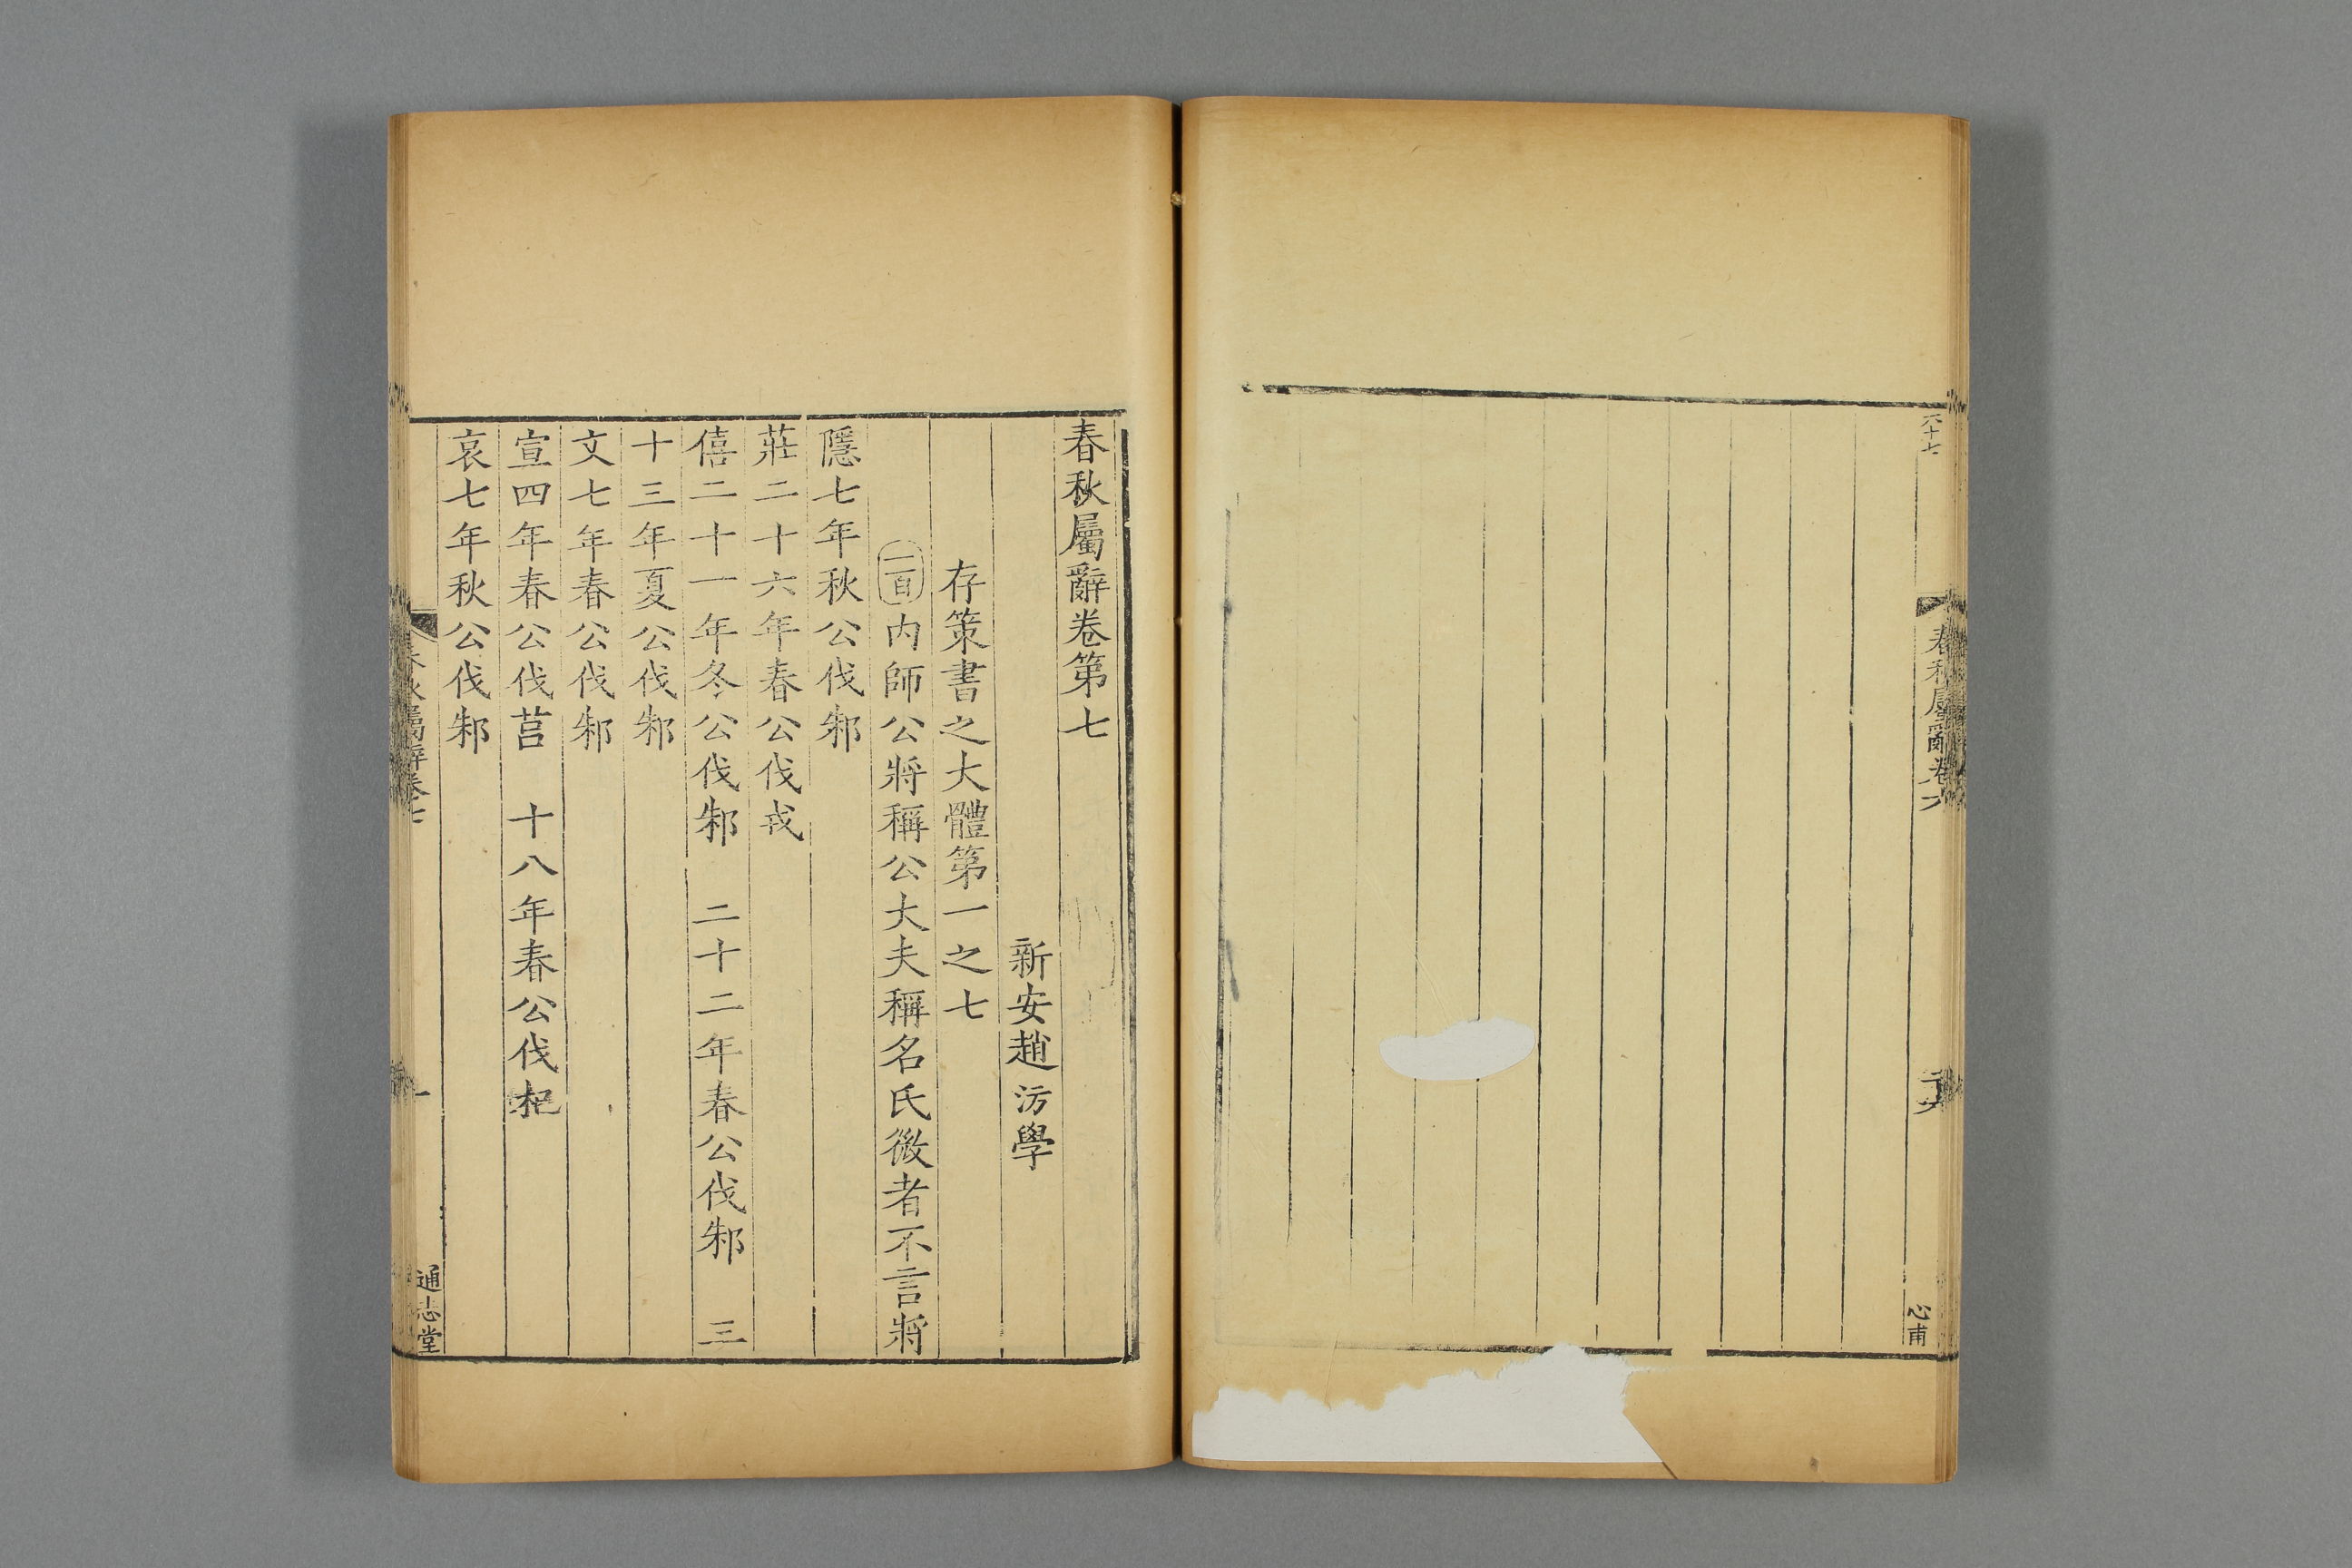 春秋屬辭卷六
心甫
春秋屬辭卷第七
新安趙汸學
存策書之大體第一之七
一百內師公將稱公大夫稱名氏微者不言將
隱七年秋公伐邾
莊二十六年春公伐戎
僖二十一年冬公伐邾 二十二年春公伐邾 三
十三年夏公伐邾
文七年春公伐邾
宣四年春公伐莒 十八年春公伐杞
哀七年秋公伐邾
春秋屬辭卷七
一
通志堂